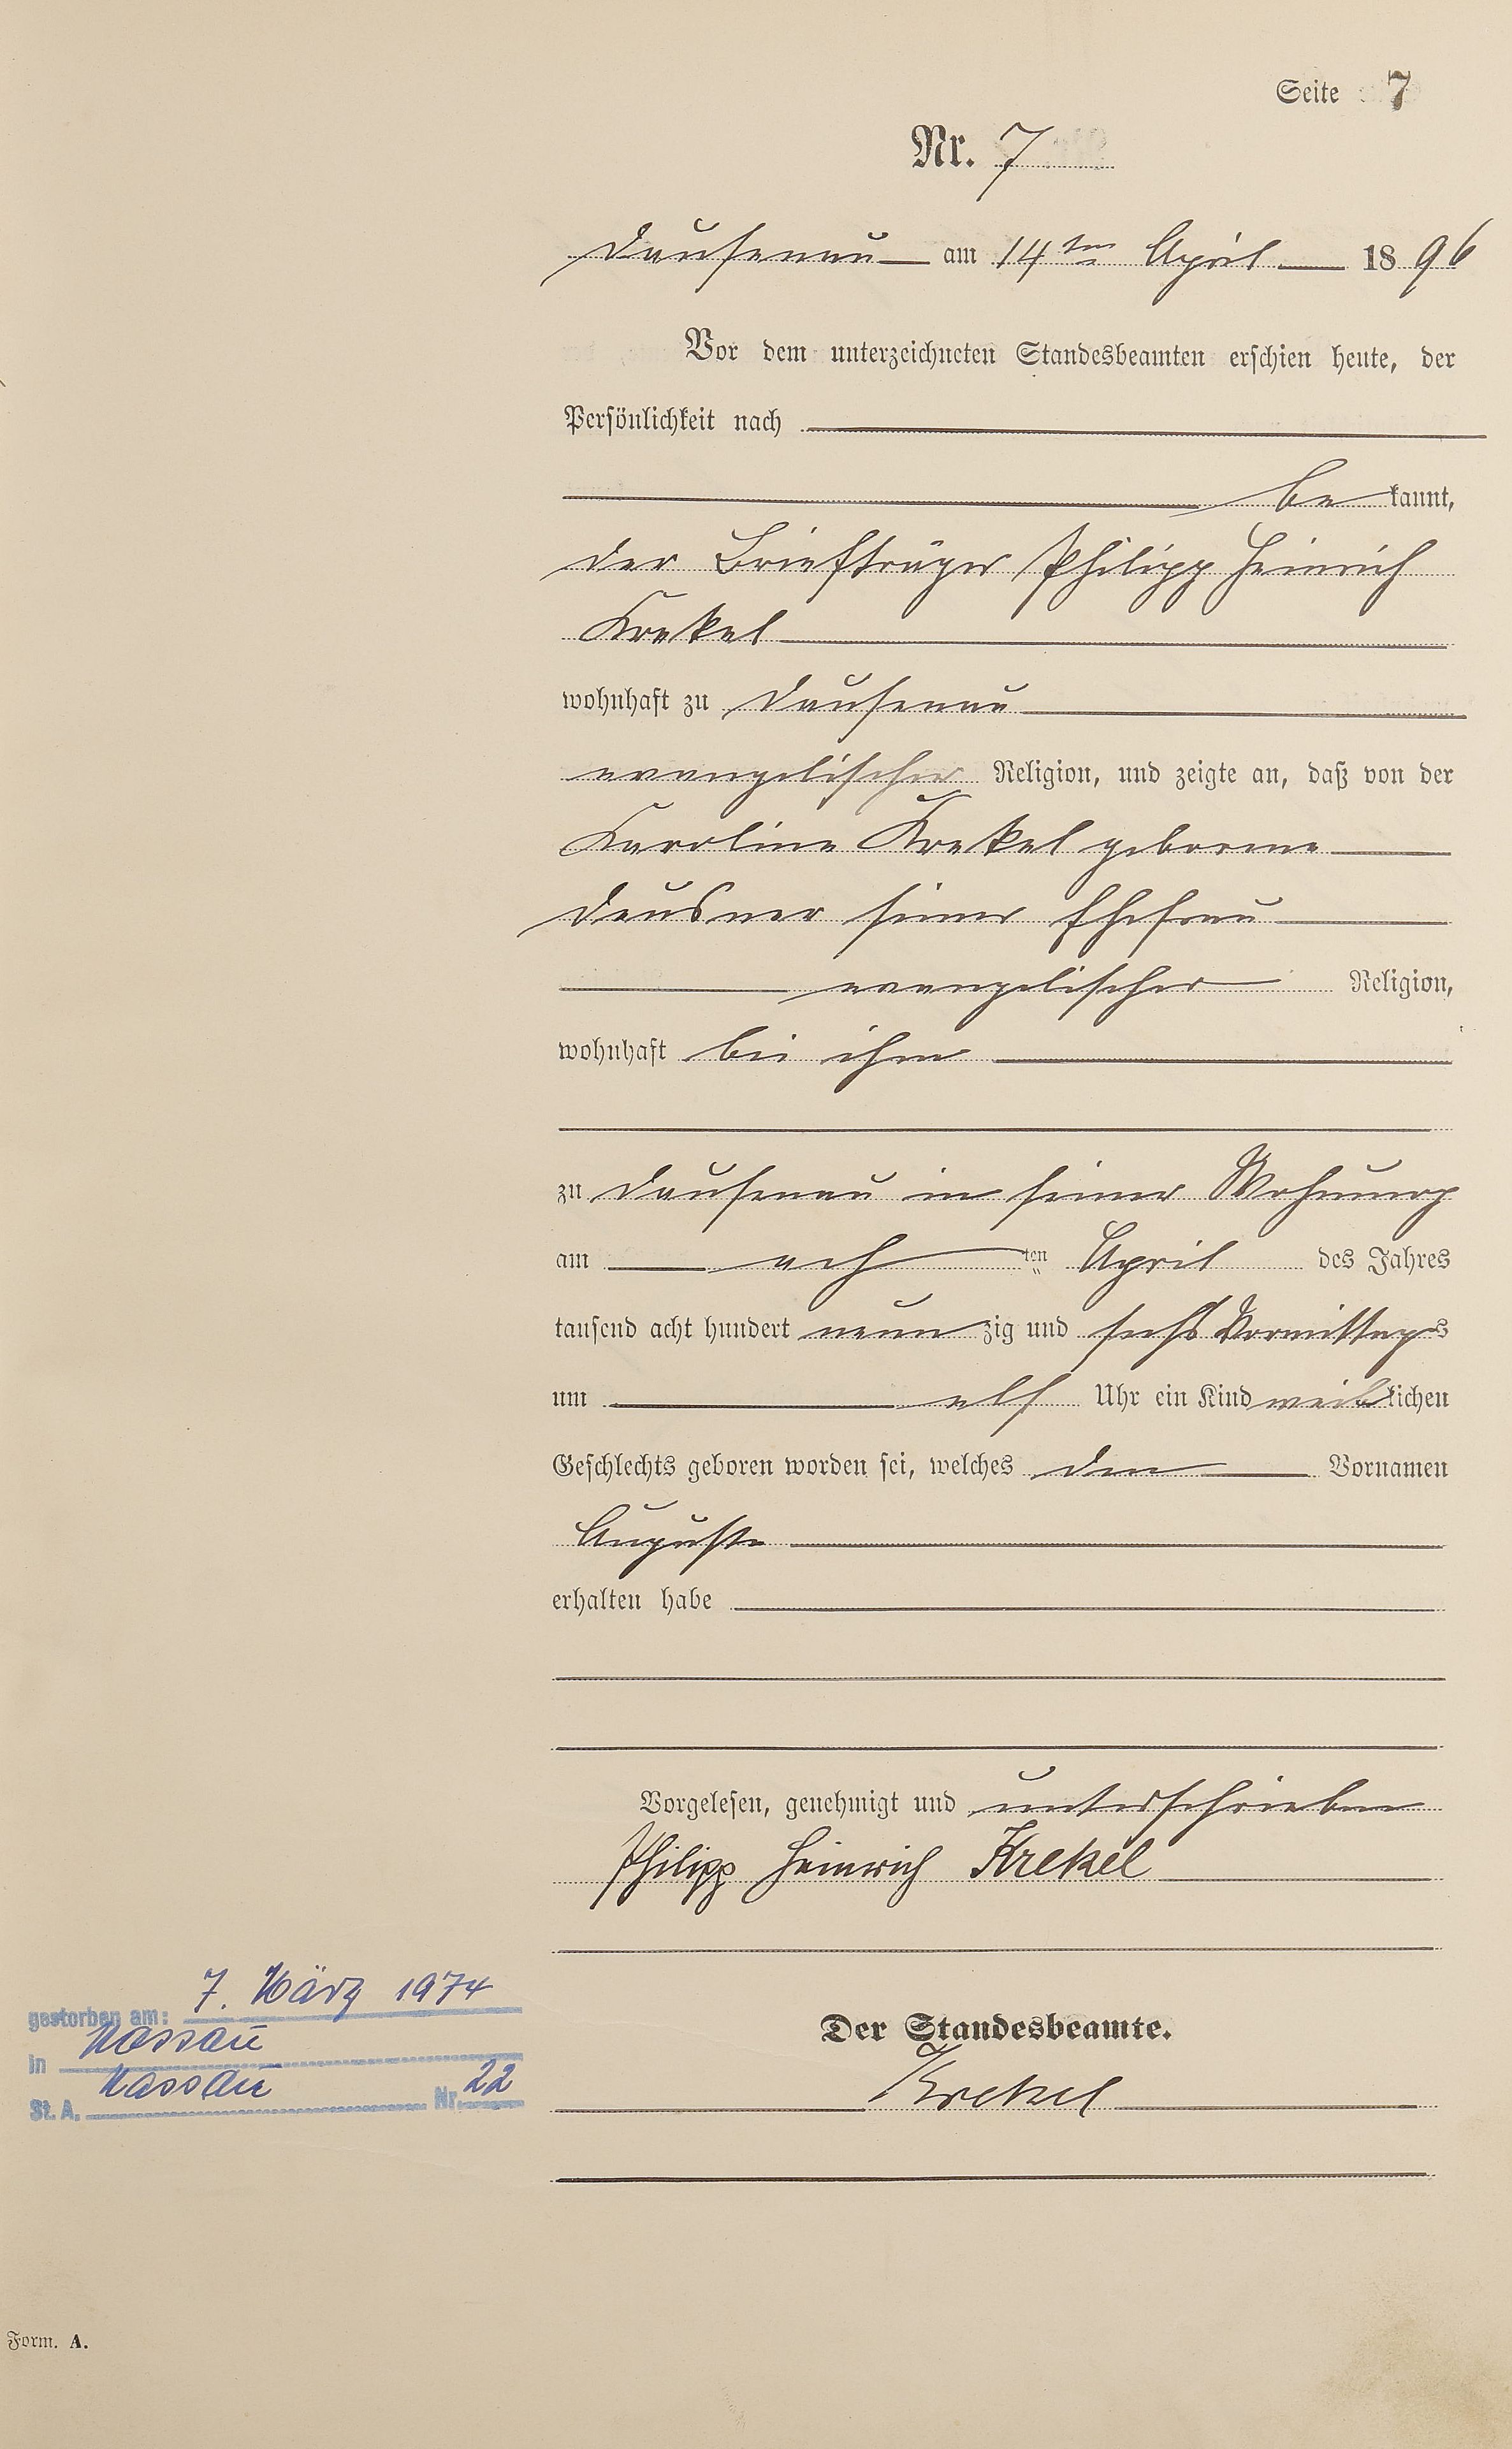 Seite 7
Nr. 7
Dausenau am 14ten April 1896
Vor dem unterzeichneten Standesbeamten erschien heute, der
Persönlichkeit nach
bekannt,
der Briefträger Philipp Heinrich
Krekel
wohnhaft zu Dausenau
evangelischer Religion, und zeigte an, daß von der
Karoline Krekel geborene
Deusner seiner Ehefrau
evangelischer Religion,
wohnhaft bei ihm
zu Dausenau in seiner Wohnung
am ach ten April des Jahres
tausend acht hundert neunzig und sechs Vormittags
um elf Uhr ein Kind weiblichen
Geschlechts geboren worden sei, welches den Vornamen
Auguste
erhalten habe
Vorgelesen, genehmigt und unterschrieben
Philipp Heinrich Krekel
gestorben am: 7. März 1974
in Nassau
St. A. Nassau Nr. 22
Der Standesbeamte.
Krekel
Form. A.